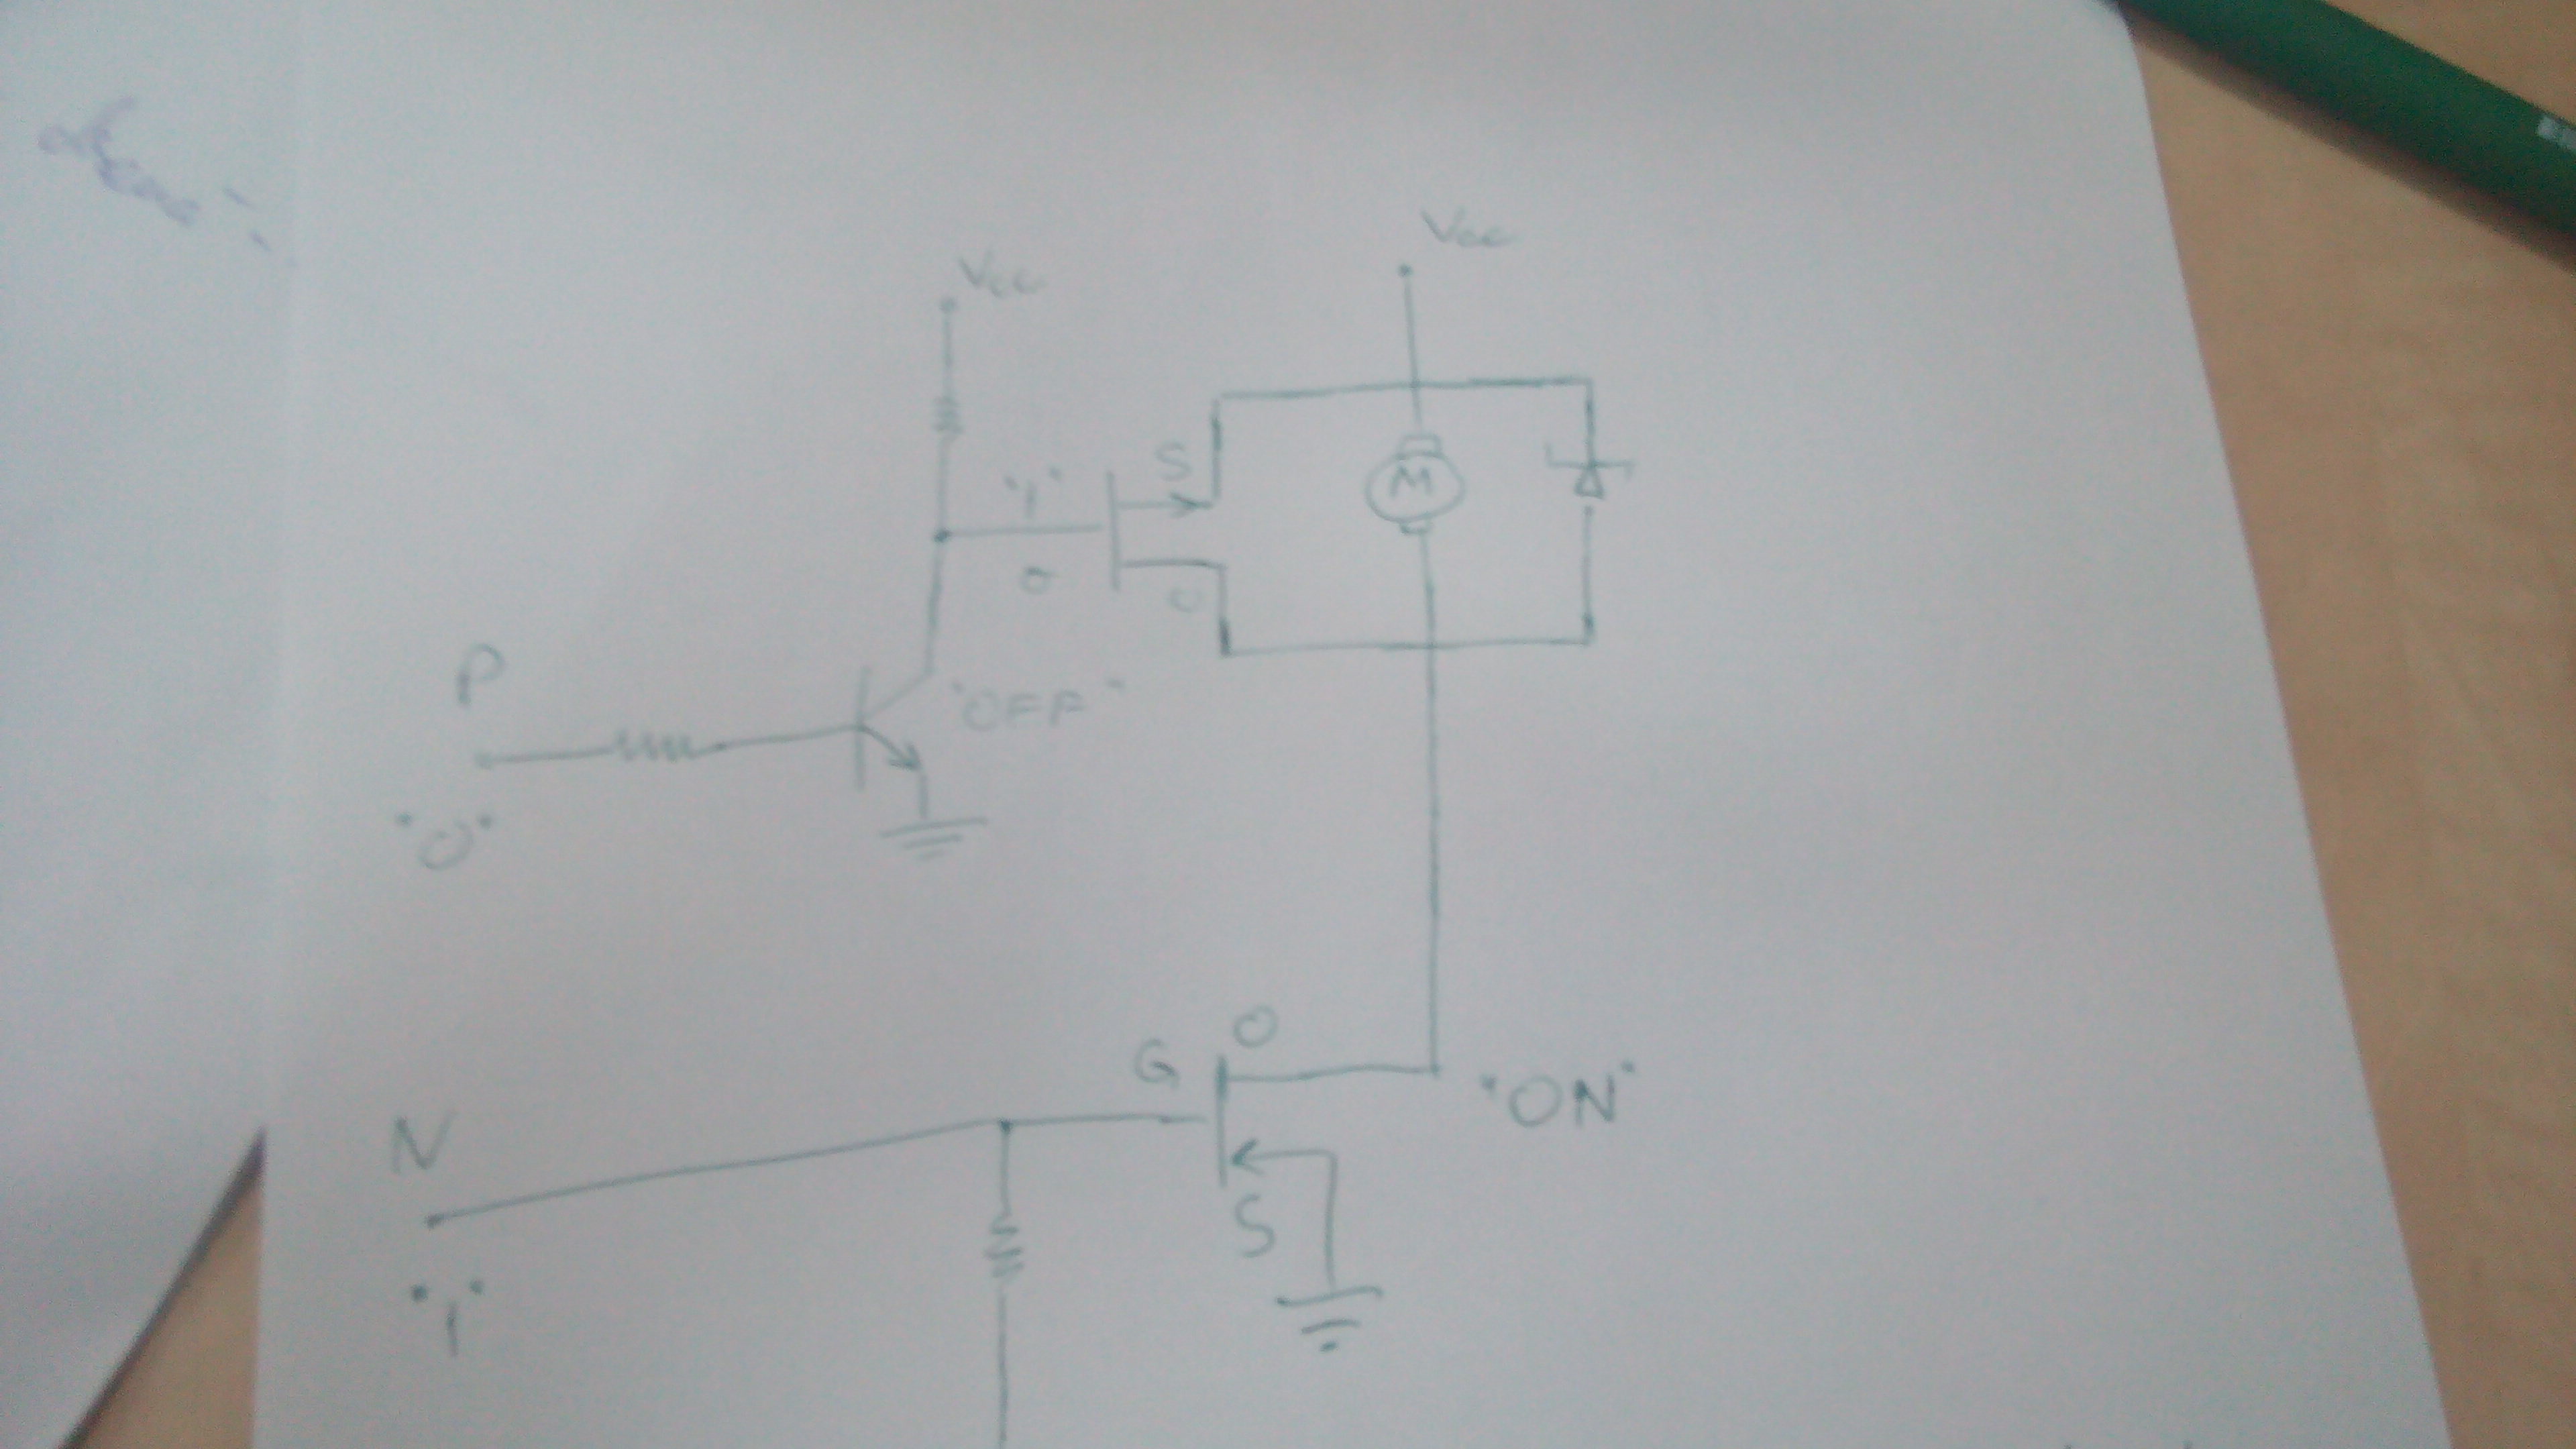 Vcc
Vcc
S
"1"
M
0
D
P
"OFF"
"0"
D
G
"ON"
N
S
"1"